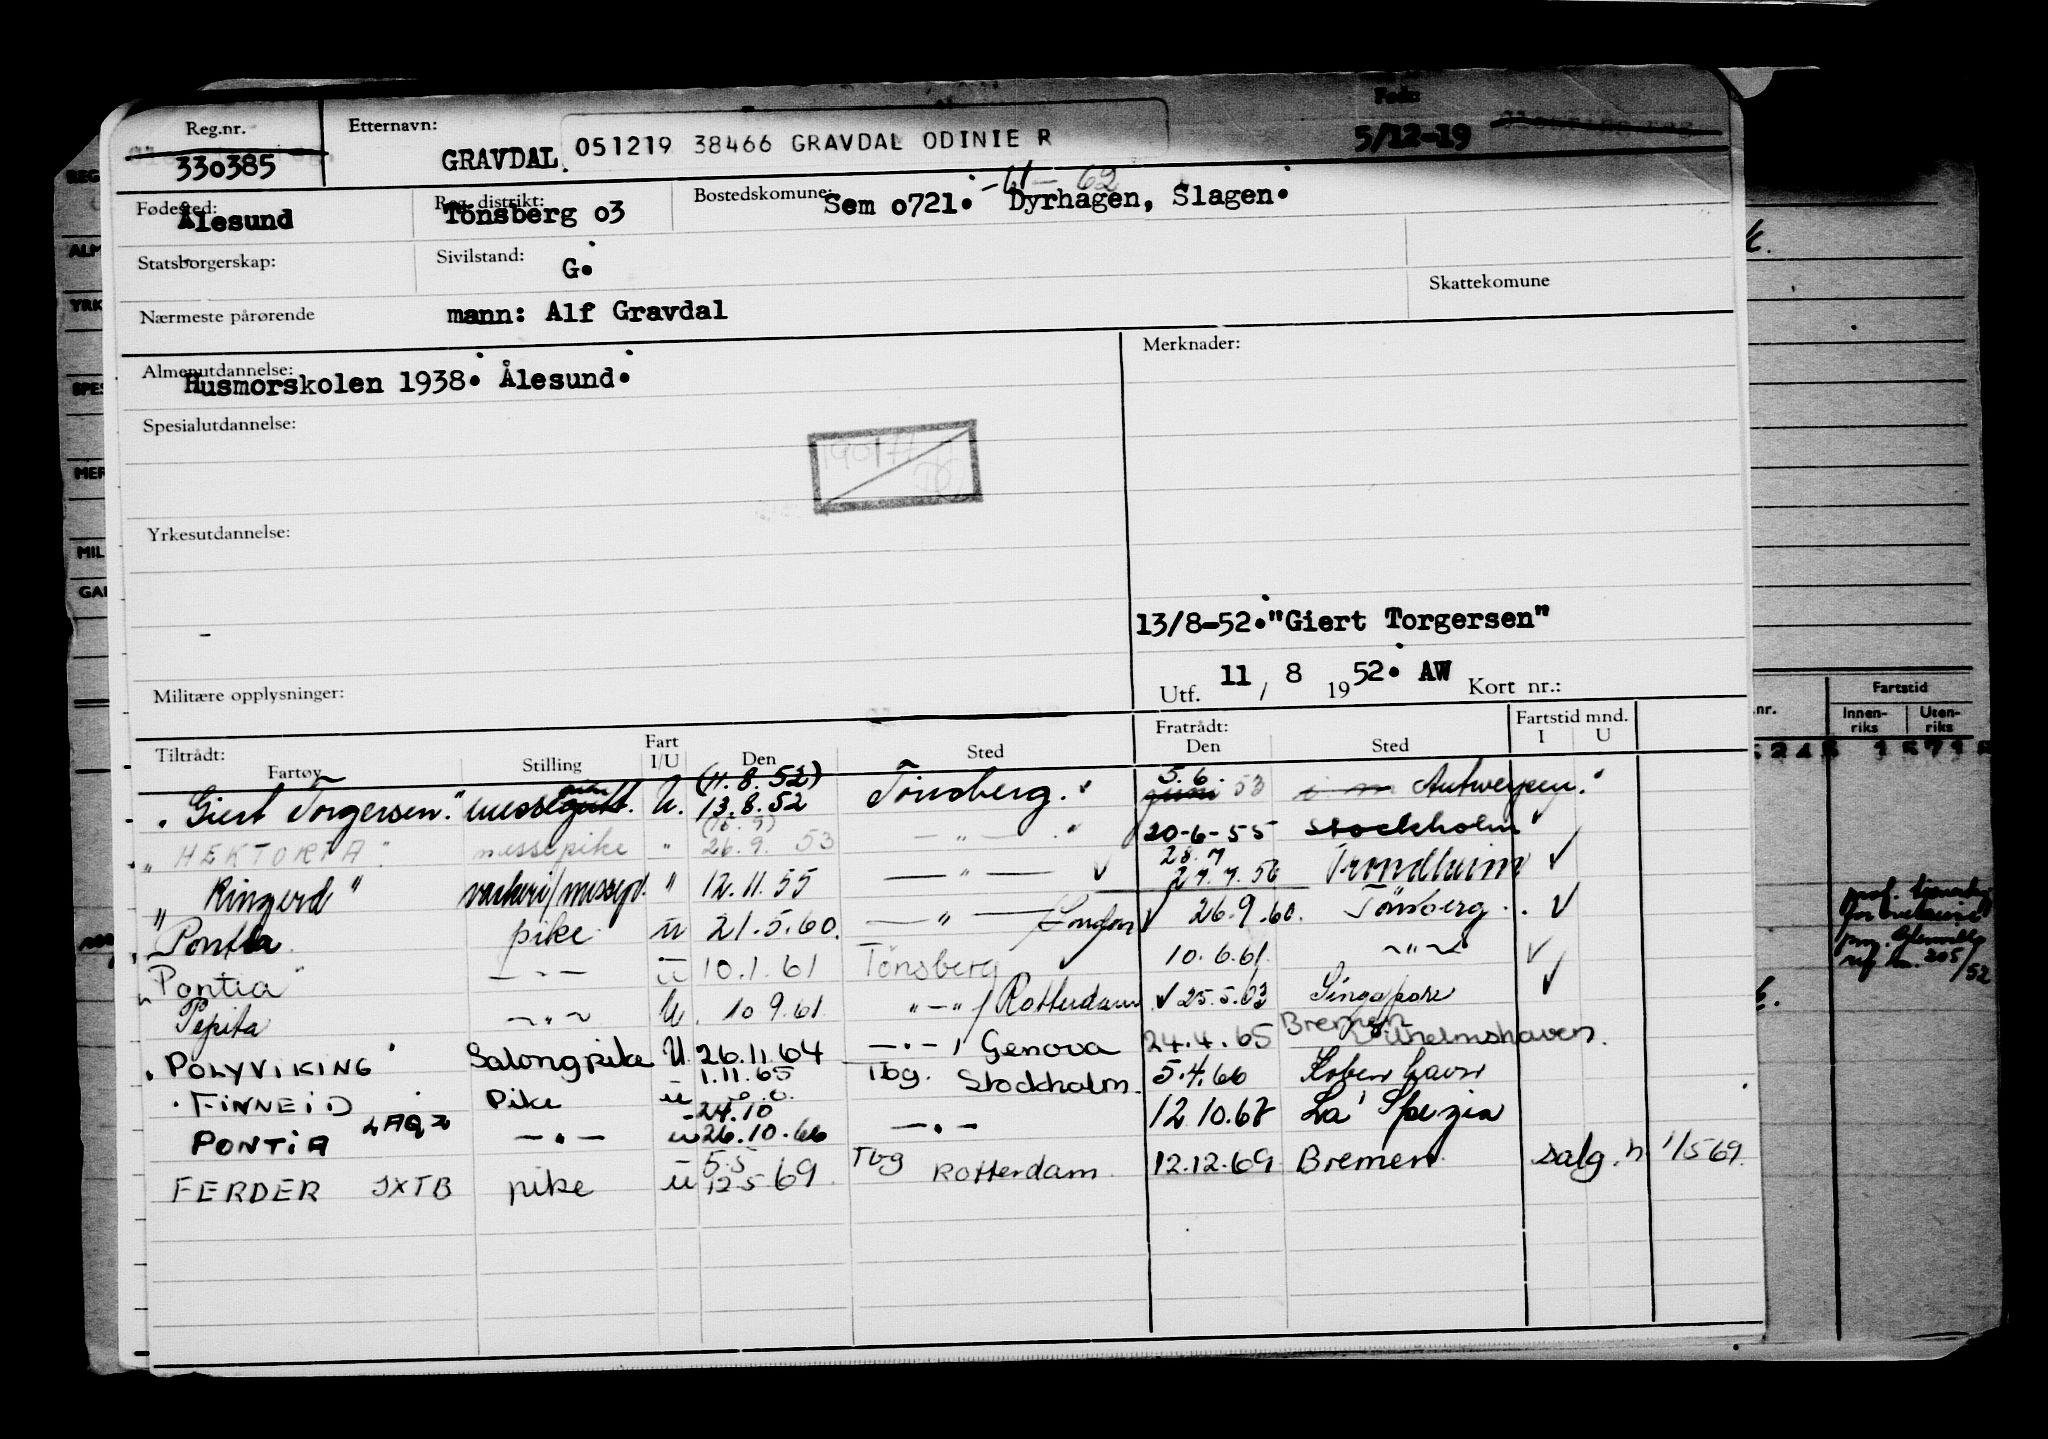 Reg.nr. Etternavn: Født:
330385 GRAVDAL 051219 38466 GRAVDAL ODINIE R 5/12-19
-61- 62
Fødested: Reg. distrikt: Bostedskomune:
Ålesund Tönsberg o3 Sem o721. Dyrhagen, Slagen.
Statsborgerskap: Sivilstand: G. Skattekomune
Nærmeste pårørende mann: Alf Gravdal
Almenutdannelse: Merknader:
Husmorskolen 1938. Ålesund.
Spesialutdannelse:
Yrkesutdannelse:
13/8-52."Giert Torgersen"
Utf. 11 / 8 1952. AW Kort nr.:
Militære opplysninger:
Tiltrådt: Fart Fratrådt: Fartstid mnd.
Fartøy Stilling I/U Den Sted Den Sted I U
(11.8.52) 5.6.
"Giert Torgersen" U. 13.8.52 Tönsberg. 53 Antwerpen.
(15.9)
"HEKTORIA" messepike " 26.9. 53 — " — 20-6-55 Stockholm
28.7
"Ringerd" " 12.11.55 — " — 27.7.56 Trondheim ✓
Pontia pike u 21.5.60. — " — /London ✓ 26.9.60. Tönsberg. ✓
Pontia" — " — u 10.1.61 Tönsberg ✓ 10.6.61. ~ " ~ ✓
Pepita ~ " ~ U. 10 9.61 " — " / Rotterdam ✓ 25.5.63 Singapore ✓
POLYVIKING Salongpike U. 26.11.64 — " —, Genova 24.4.65 Bremen Wilhelmshaven.
FINNEID Pike u 1.11.65 Tbg. Stockholm. 5.4.66 Köbenhavn
24.10
PONTIA LAQZ — " — u 26.10.66 — " — 12 10.67 La Spezia
5.5
FERDER JXTB pike u 12.5 69. Tbg Rotterdam 12.12.69 Bremen salg. n 1/5 69.
Fartstid
Innen-riks Uten-riks
205/52